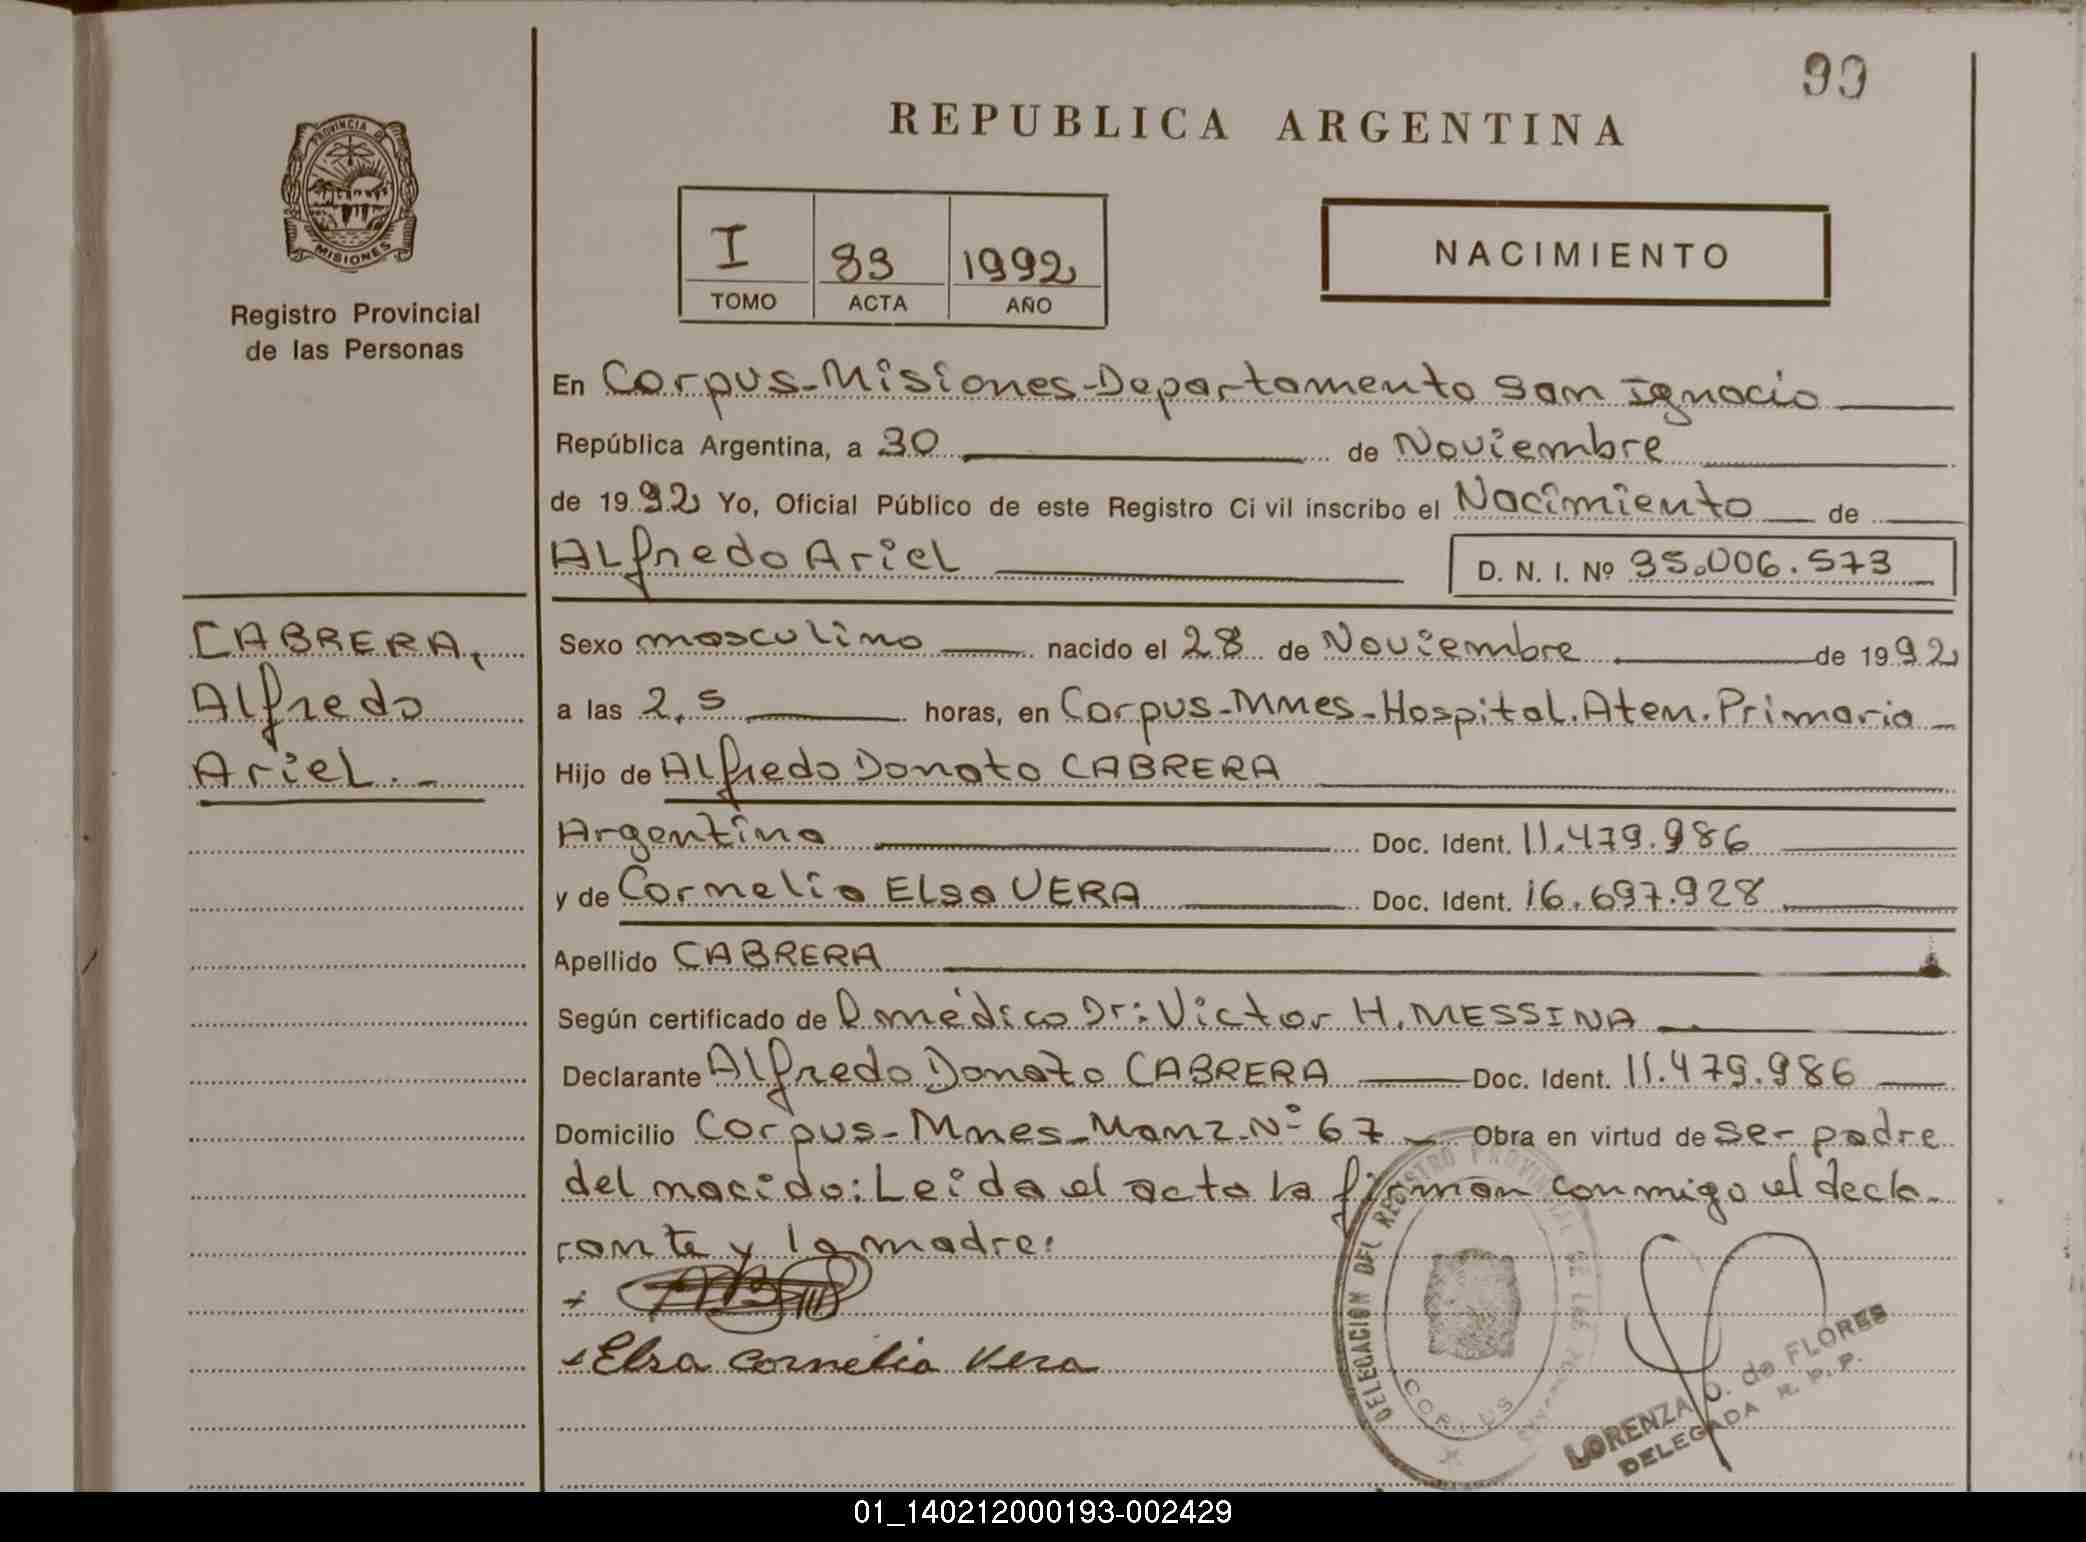 99
REPUBLICA ARGENTINA
PROVINCIA DE
MISIONES
Registro Provincial
de las Personas
I 83 1992
TOMO ACTA AÑO
NACIMIENTO
En Corpus-Misiones-Departamento San Ignacio
República Argentina, a 30 de Noviembre
de 1992 Yo, Oficial Público de este Registro Civil inscribo el Nacimiento de
Alfredo Ariel D. N. I. Nº 35.006.573
CABRERA,
Alfredo
Ariel.-
Sexo masculino nacido el 28 de Noviembre de 1992
a las 2,5 horas, en Corpus-Mnes-Hospital.Aten.Primaria
Hijo de Alfredo Donato CABRERA
Argentino Doc. Ident. 11.479.986
y de Cornelia Elsa VERA Doc. Ident. 16.697.928
Apellido CABRERA
Según certificado de médico Dr: Victor H. MESSINA
Declarante Alfredo Donato CABRERA Doc. Ident. 11.479.986
Domicilio Corpus-Mnes-Manz.Nº 67 Obra en virtud de ser padre
del nacido: Leida el acta la firman conmigo el decla-
rante y la madre:
Elsa Cornelia Vera
DELEGACIÓN DEL REGISTRO PROVINCIAL DE LAS
CORPUS
LORENZA D. de FLORES
DELEGADA R. P. P.
01_140212000193-002429